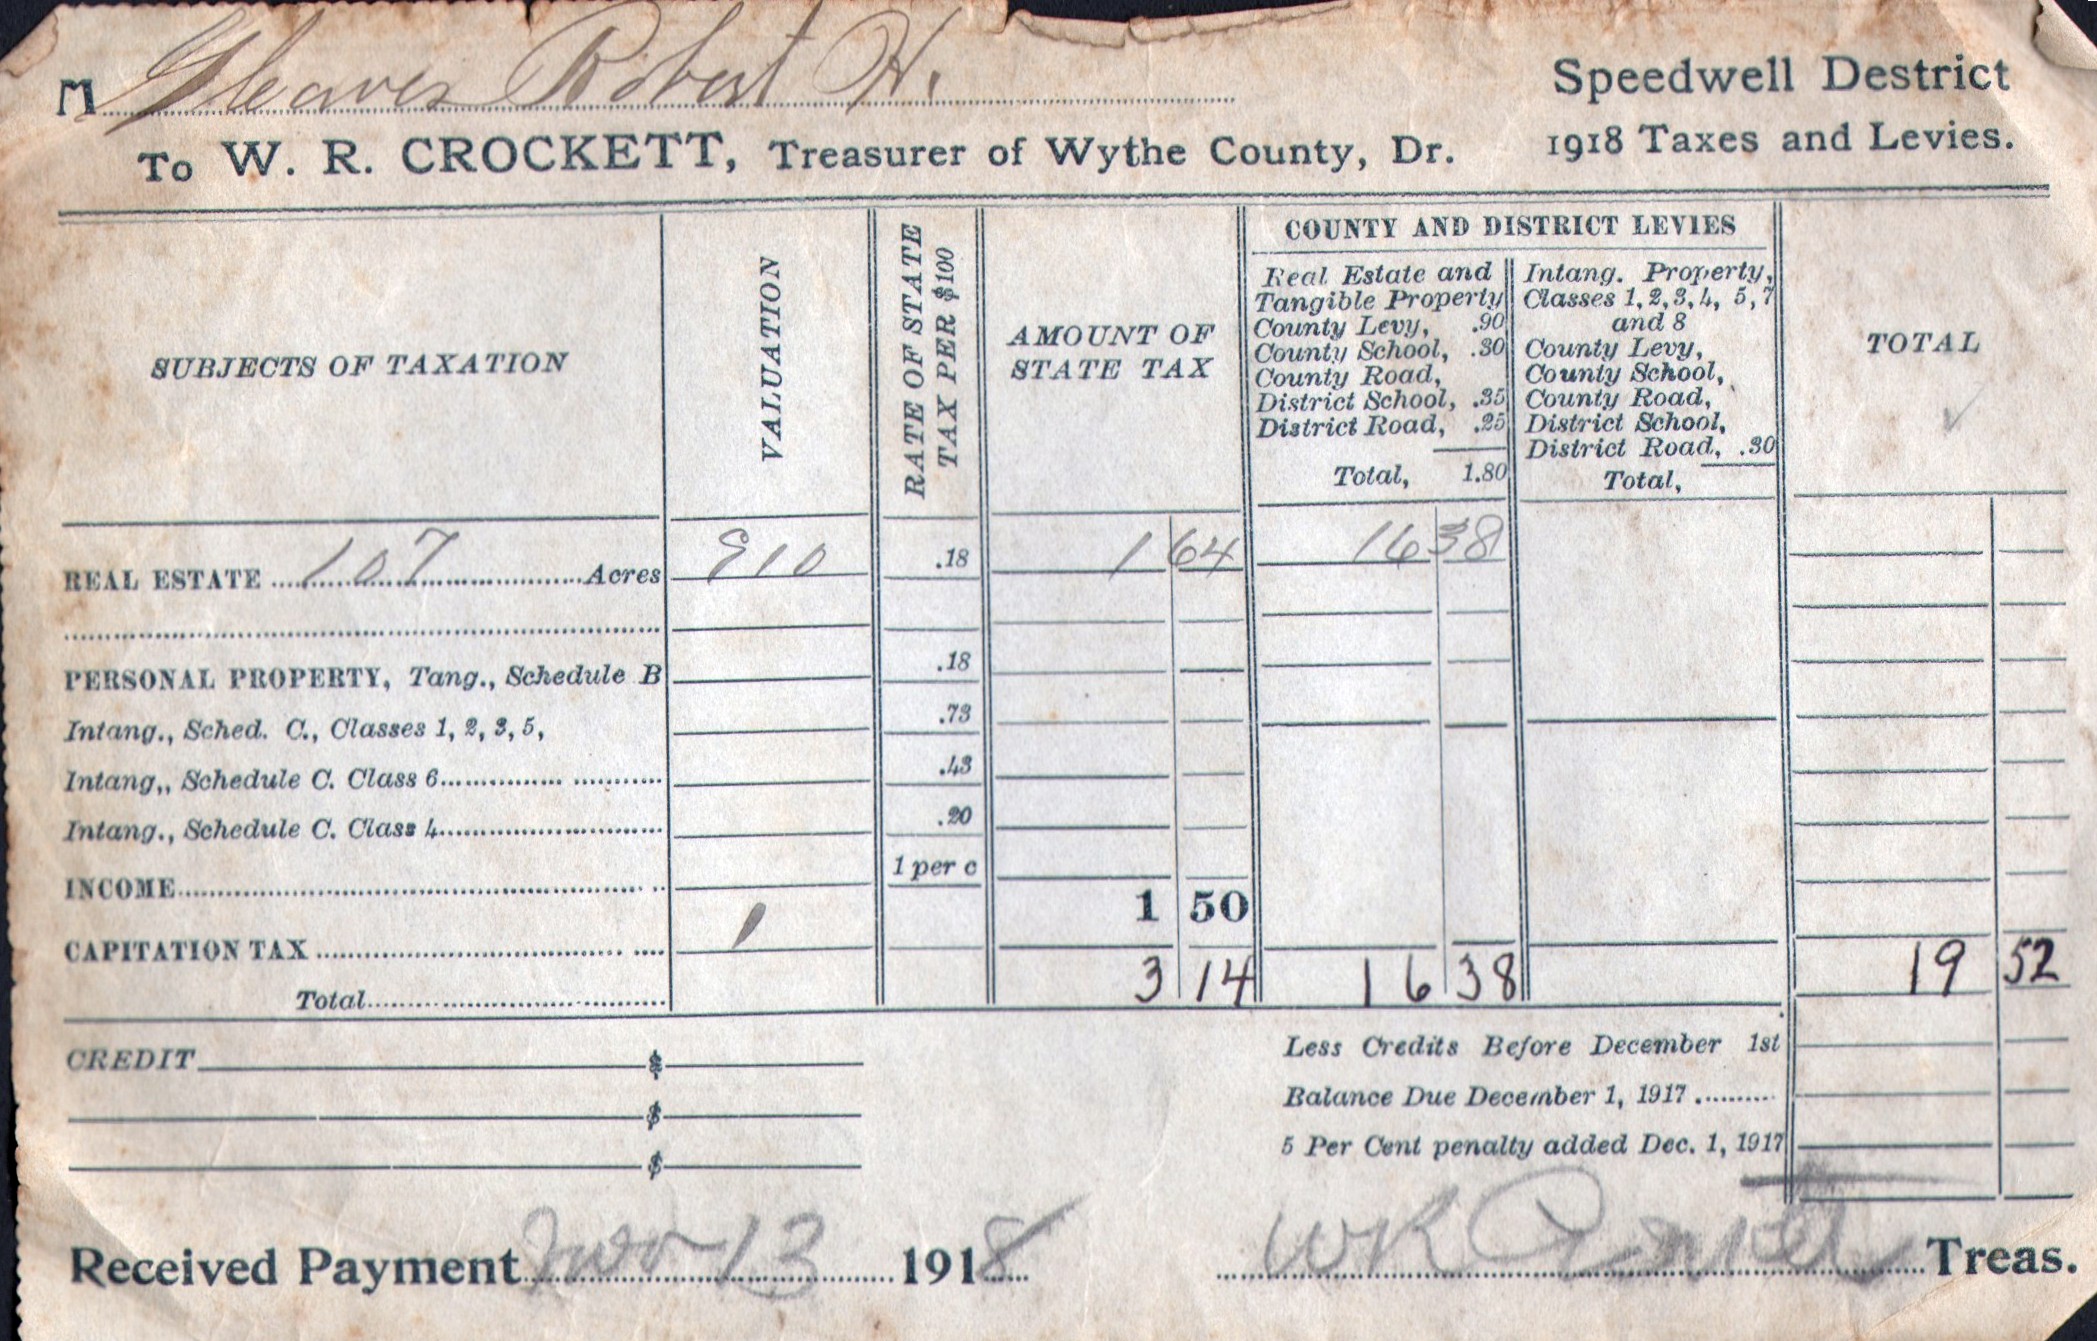 M Gleaves Robert H.
Speedwell Destrict
To W. R. CROCKETT, Treasurer of Wythe County, Dr.
1918 Taxes and Levies.
SUBJECTS OF TAXATION
VALUATION
RATE OF STATE
TAX PER $100
AMOUNT OF
STATE TAX
COUNTY AND DISTRICT LEVIES
Real Estate and
Tangible Property
County Levy, .90
County School, .30
County Road,
District School, .35
District Road, .25
Total, 1.80
Intang. Property,
Classes 1, 2, 3, 4, 5, 7
and 8
County Levy,
County School,
County Road,
District School,
District Road, .30
Total,
TOTAL
REAL ESTATE 107 Acres 910 .18 1 64 16 38
PERSONAL PROPERTY, Tang., Schedule B .18
Intang., Sched. C., Classes 1, 2, 3, 5, .73
Intang,, Schedule C. Class 6 .43
Intang., Schedule C. Class 4 .20
INCOME 1 per c
CAPITATION TAX 1 1 50
Total 3 14 16 38 19 52
CREDIT $
$
$
Less Credits Before December 1st
Balance Due December 1, 1917
5 Per Cent penalty added Dec. 1, 1917
Received Payment Nov 13 1918 W R Crockett Treas.